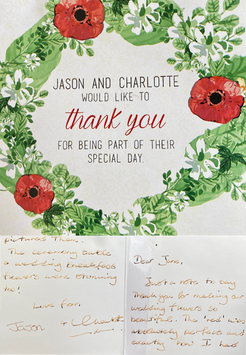 JASON AND CHARLOTTE
WOULD LIKE TO
thank you
FOR BEING PART OF THEIR
SPECIAL DAY.
pictured them.
The ceremony table
+ wedding breakfast
flowers were stunning
too!
Love from,
Jason + Charlotte
Dear Jane,
Just a note to say
thank you for making our
wedding flowers so
beautiful. The 'red' was
absolutely perfect and
exactly how I had